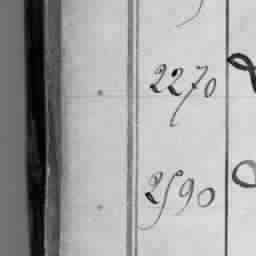 2270
2590